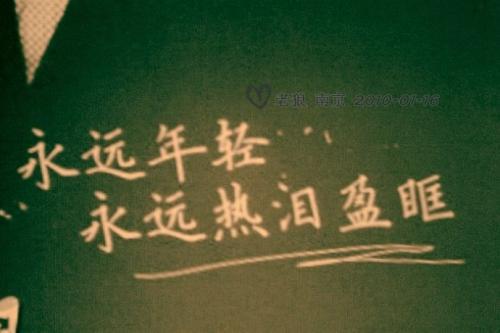 老狼 南京 2010-01-16
永远年轻
永远热泪盈眶